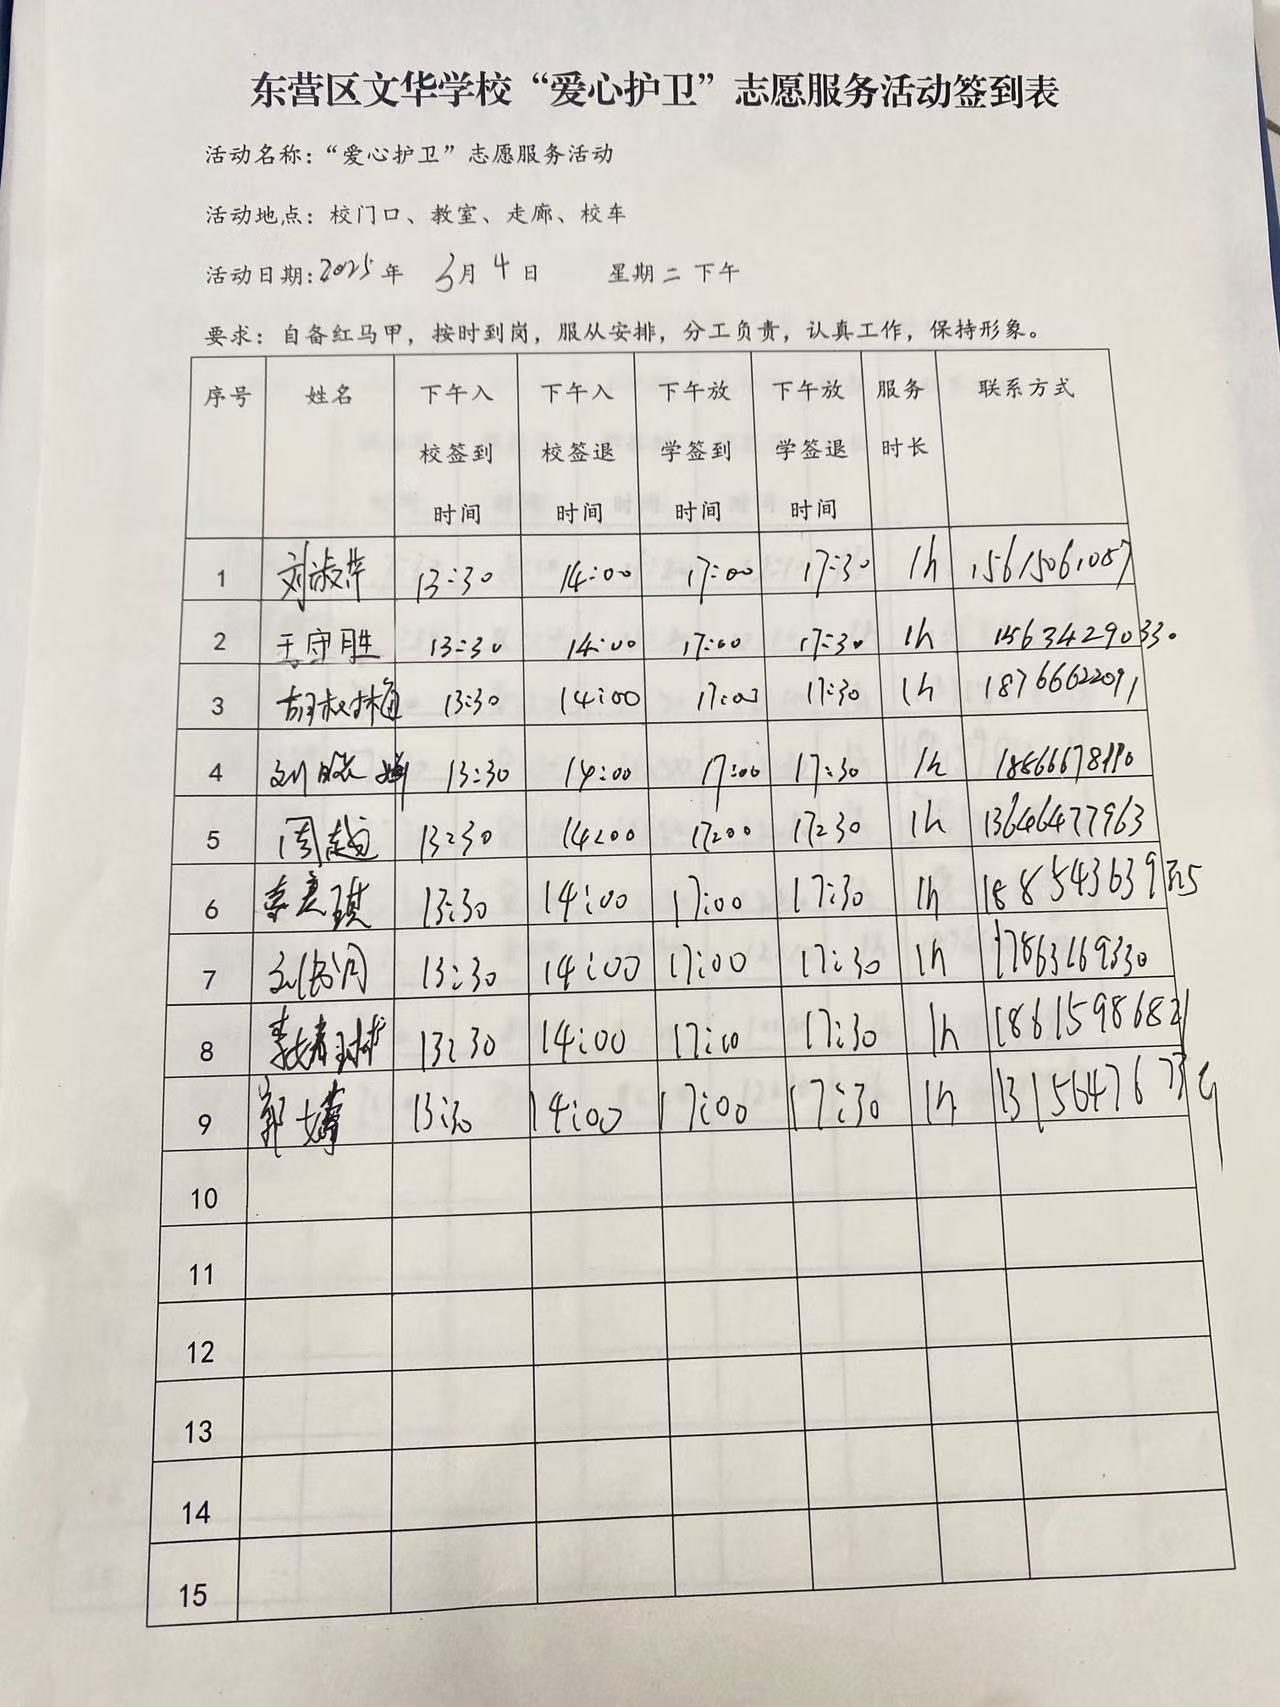 东营区文华学校“爱心护卫”志愿服务活动签到表
活动名称：“爱心护卫”志愿服务活动
活动地点：校门口、教室、走廊、校车
活动日期：2025年 3月4日 星期二下午
要求：自备红马甲，按时到岗，服从安排，分工负责，认真工作，保持形象。
序号 姓名 下午入校签到时间 下午入校签退时间 下午放学签到时间 下午放学签退时间 服务时长 联系方式
1 刘淑萍 13:30 14:00 17:00 17:30 1h 15615061057
2 王守胜 13:30 14:00 17:00 17:30 1h 15634290330
3 胡 13:30 14:00 17:00 17:30 1h 18766622091
4 刘 13:30 14:00 17:00 17:30 1h
5 周越 13:30 14:00 17:00 17:30 1h 13646477963
6 琪 13:30 14:00 17:00 17:30 1h
7 刘 13:30 14:00 17:00 17:30 1h 17863169330
8 李 13:30 14:00 17:00 17:30 1h 18615986821
9 郭 13:30 14:00 17:00 17:30 1h
10
11
12
13
14
15